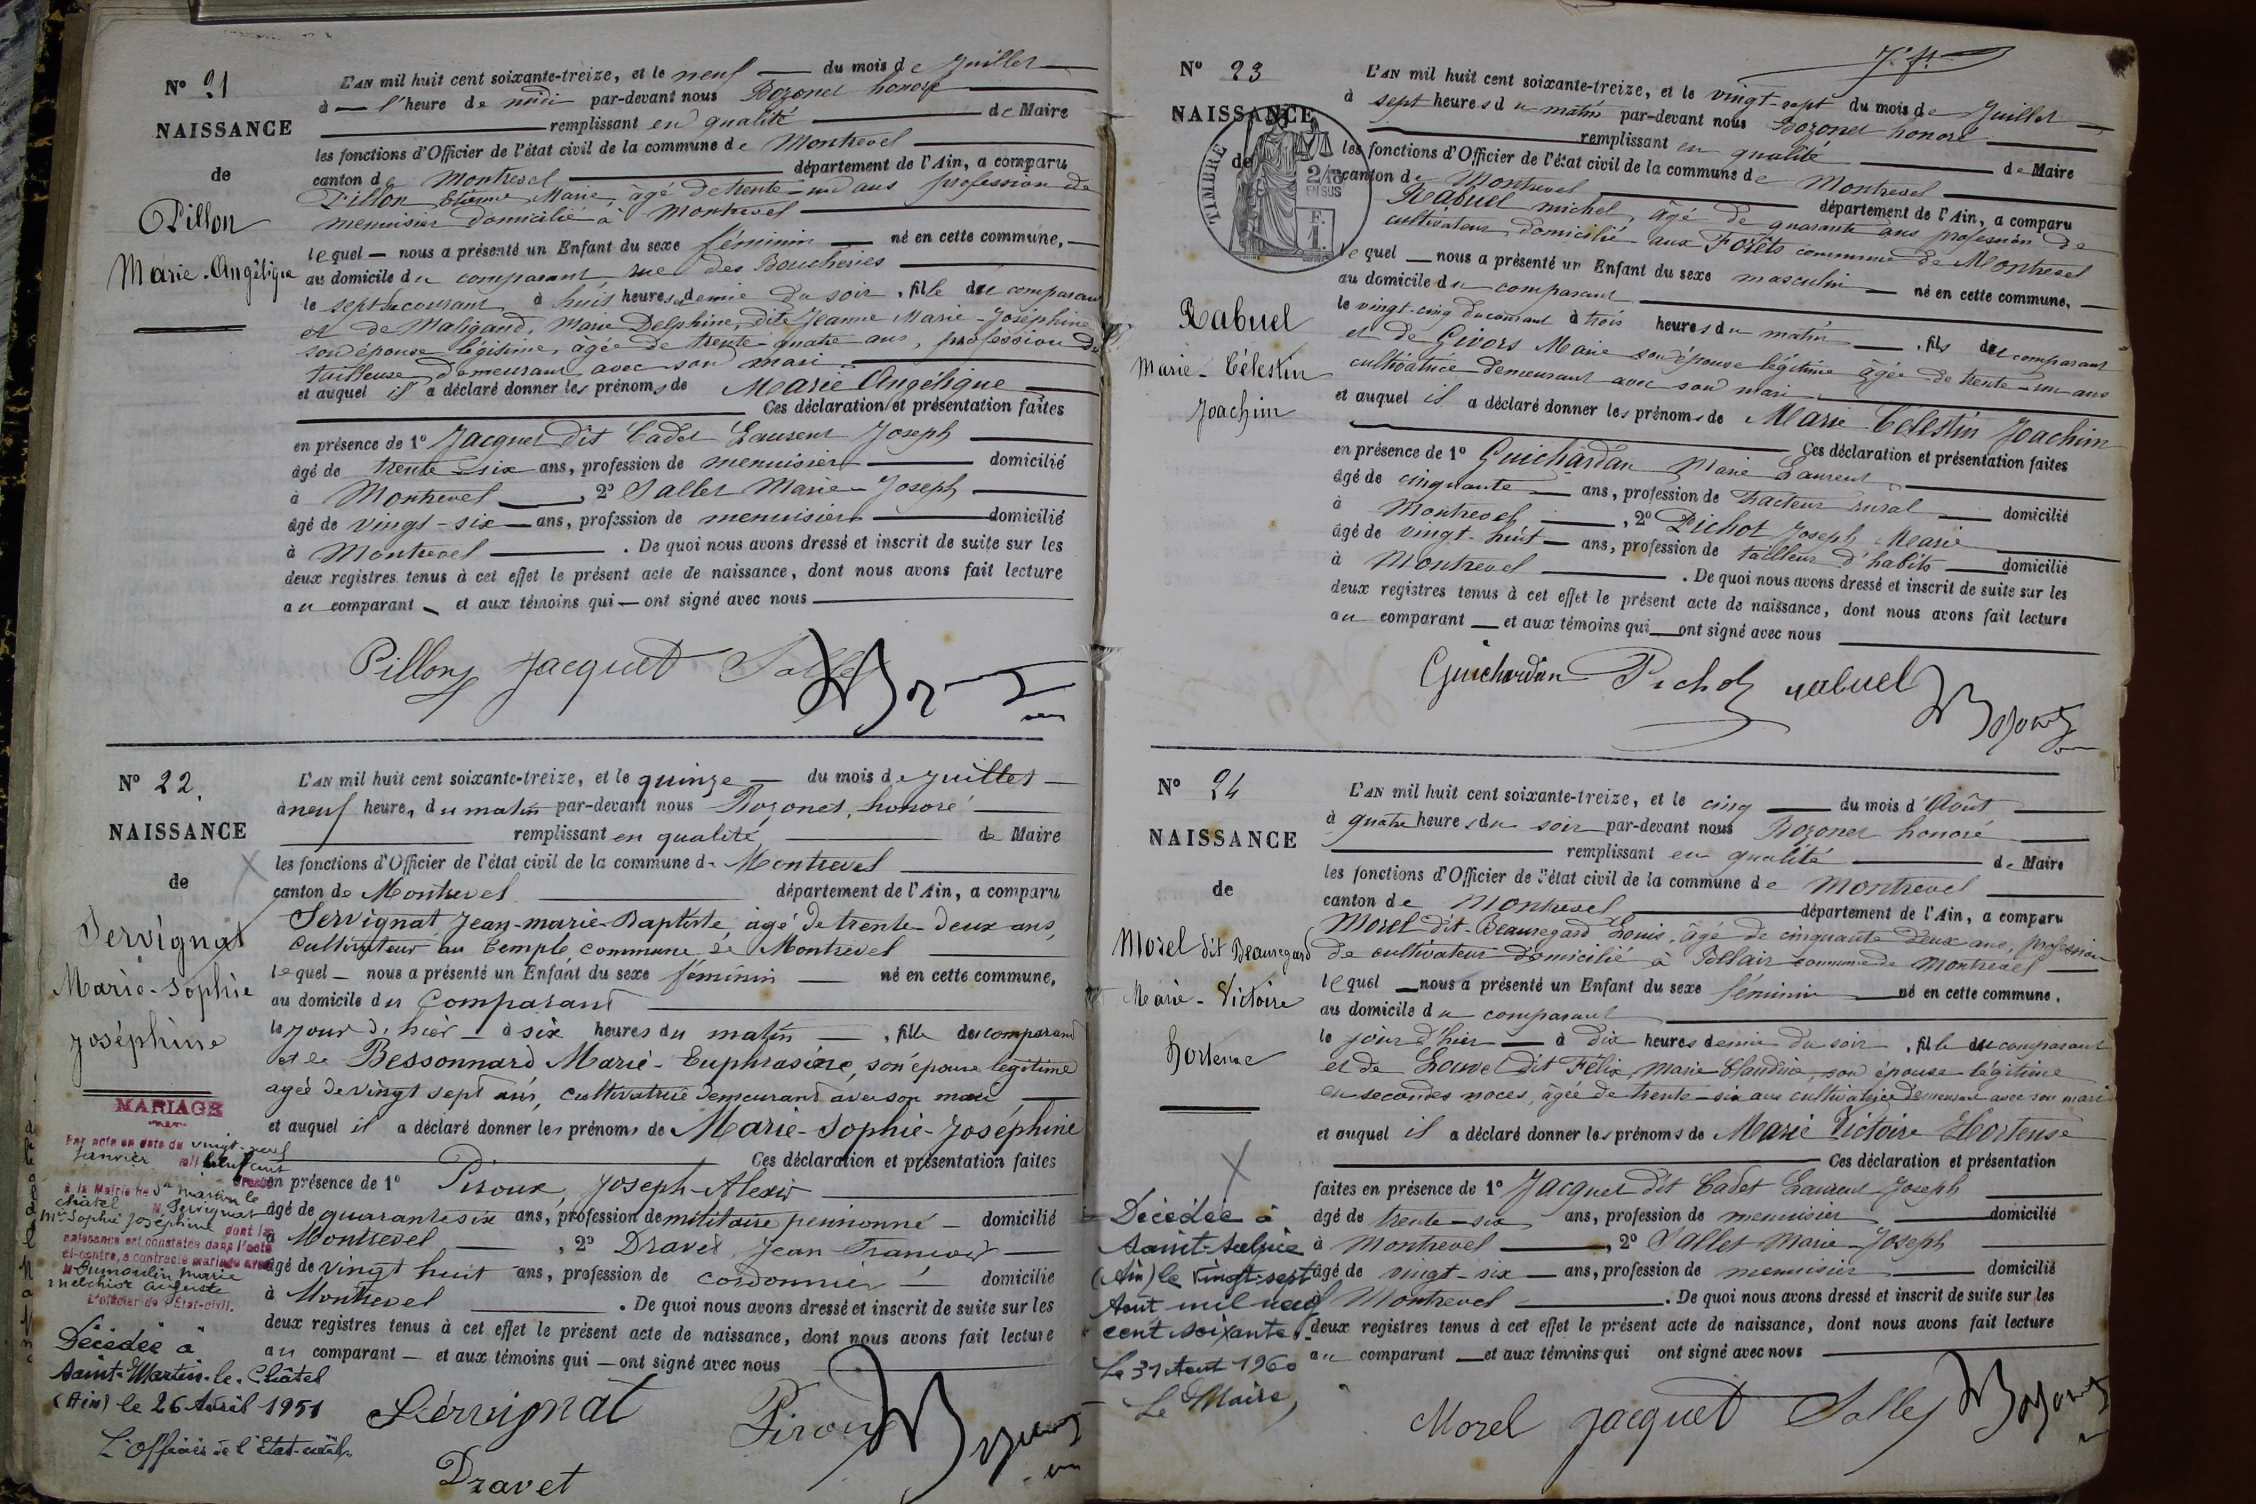 N° 21
NAISSANCE
de
Pillon
Marie-Angélique
L'AN mil huit cent soixante-treize, et le neuf du mois de Juillet
à l'heure de midi par-devant nous Bozonet honoré
remplissant en qualité de Maire
les fonctions d'Officier de l'état civil de la commune de Montrevel
canton de Montrevel département de l'Ain, a comparu
Pillon Etienne Marie, âgé de trente-un ans profession de
menuisier domicilié à Montrevel
lequel nous a présenté un Enfant du sexe féminin né en cette commune,
au domicile du comparant, rue des Boucheries
le sept du courant à huit heures et demie du soir, fille du comparant
et de Maligand, Marie Delphine, dite Jeanne Marie-Joséphine
son épouse légitime, âgée de trente-quatre ans, profession de
tailleuse demeurant avec son mari
et auquel il a déclaré donner les prénoms de Marie Angélique
Ces déclaration et présentation faites
en présence de 1° Jacquet dit Cadet Laurent Joseph
âgé de trente-six ans, profession de menuisier domicilié
à Montrevel, 2° Sallet Marie-Joseph
âgé de vingt-six ans, profession de menuisier domicilié
à Montrevel. De quoi nous avons dressé et inscrit de suite sur les
deux registres tenus à cet effet le présent acte de naissance, dont nous avons fait lecture
au comparant et aux témoins qui ont signé avec nous
Pillon Jacquet Sallet
N° 22.
NAISSANCE
de
Servignat
Marie-Sophie
Joséphine
L'AN mil huit cent soixante-treize, et le quinze du mois de Juillet
à neuf heures du matin par-devant nous Bozonet, honoré
remplissant en qualité de Maire
les fonctions d'Officier de l'état civil de la commune de Montrevel
canton de Montrevel département de l'Ain, a comparu
Servignat Jean-marie-Baptiste, âgé de trente-deux ans,
Cultivateur au Temple, commune de Montrevel
lequel nous a présenté un Enfant du sexe féminin né en cette commune,
au domicile du Comparant
le jour d'hier à six heures du matin, fille du comparant
et de Bessonnard Marie-Euphrasine, son épouse légitime
agée de vingt sept ans, cultivatrice demeurant avec son mari
et auquel il a déclaré donner les prénoms de Marie-Sophie-Joséphine
Ces déclaration et présentation faites
en présence de 1° Piroux, Joseph-Alexis
âgé de quarante six ans, profession de militaire pensionné domicilié
à Montrevel, 2° Dravet, Jean François
âgé de vingt huit ans, profession de cordonnier domicilié
à Montrevel. De quoi nous avons dressé et inscrit de suite sur les
deux registres tenus à cet effet le présent acte de naissance, dont nous avons fait lecture
au comparant et aux témoins qui ont signé avec nous
Servignat Piroux
Dravet
MARIAGE
Par acte en date du vingt-neuf
Janvier mil neuf cent
à la Mairie de St Martin le
Châtel Servignat
Mie Sophie Joséphine dont la
naissance est constatée dans l'acte
ci-contre, a contracté mariage avec
M Dumoulin Marie
Melchior Auguste
L'officier de l'Etat-civil.
Décédée à
Saint-Martin-le-Châtel
(Ain) le 26 Avril 1951
L'Officier de l'Etat-civil
N° 23
NAISSANCE
de
TIMBRE
2/10
EN SUS
F.
1.
Rabuel
Marie-Célestin
Joachim
L'AN mil huit cent soixante-treize, et le vingt-sept du mois de Juillet
à sept heures du matin par-devant nous Bozonet honoré
remplissant en qualité de Maire
les fonctions d'Officier de l'état civil de la commune de Montrevel
canton de Montrevel département de l'Ain, a comparu
Rabuel michel, âgé de quarante ans profession de
cultivateur, domicilié aux Forêts commune de Montrevel
lequel nous a présenté un Enfant du sexe masculin né en cette commune,
au domicile du comparant
le vingt-cinq du courant à trois heures du matin, fils du comparant
et de Givors Marie son épouse légitime âgée de trente-un ans
cultivatrice demeurant avec son mari
et auquel il a déclaré donner les prénoms de Marie Célestin Joachim
Ces déclaration et présentation faites
en présence de 1° Guichardan Marie Laurent
âgé de cinquante ans, profession de Facteur rural domicilié
à Montrevel, 2° Pichot Joseph Marie
âgé de vingt-huit ans, profession de tailleur d'habits domicilié
à Montrevel. De quoi nous avons dressé et inscrit de suite sur les
deux registres tenus à cet effet le présent acte de naissance, dont nous avons fait lecture
au comparant et aux témoins qui ont signé avec nous
Guichardan Pichot rabuel Bozonet
N° 24
NAISSANCE
de
Morel dit Beauregard
Marie-Victoire
hortense
L'AN mil huit cent soixante-treize, et le cinq du mois d'Août
à quatre heures du soir par-devant nous Bozonet honoré
remplissant en qualité de Maire
les fonctions d'Officier de l'état civil de la commune de Montrevel
canton de Montrevel département de l'Ain, a comparu
Morel dit-Beauregard Louis, âgé de cinquante deux ans, profession
de cultivateur domicilié à commune de Montrevel
lequel nous a présenté un Enfant du sexe féminin né en cette commune,
au domicile du comparant
le jour d'hier à dix heures demie du soir, fille du comparant
et de Louvet dit Félix, Marie Claudine, son épouse légitime
en secondes noces, âgée de trente-six ans cultivatrice demeurant avec son mari
et auquel il a déclaré donner les prénoms de Marie Victoire Hortense
Ces déclaration et présentation
faites en présence de 1° Jacquet dit Cadet Laurent Joseph
âgé de trente-six ans, profession de menuisier domicilié
à Montrevel, 2° Sallet Marie-Joseph
âgé de vingt-six ans, profession de menuisier domicilié
à Montrevel. De quoi nous avons dressé et inscrit de suite sur les
deux registres tenus à cet effet le présent acte de naissance, dont nous avons fait lecture
au comparant et aux témoins qui ont signé avec nous
Morel Jacquet Sallet Bozonet
Décédée à
Saint-Sulpice
(Ain) le vingt-sept
Aout mil neuf
cent soixante.
Le 31 Aout 1960
Le Maire,